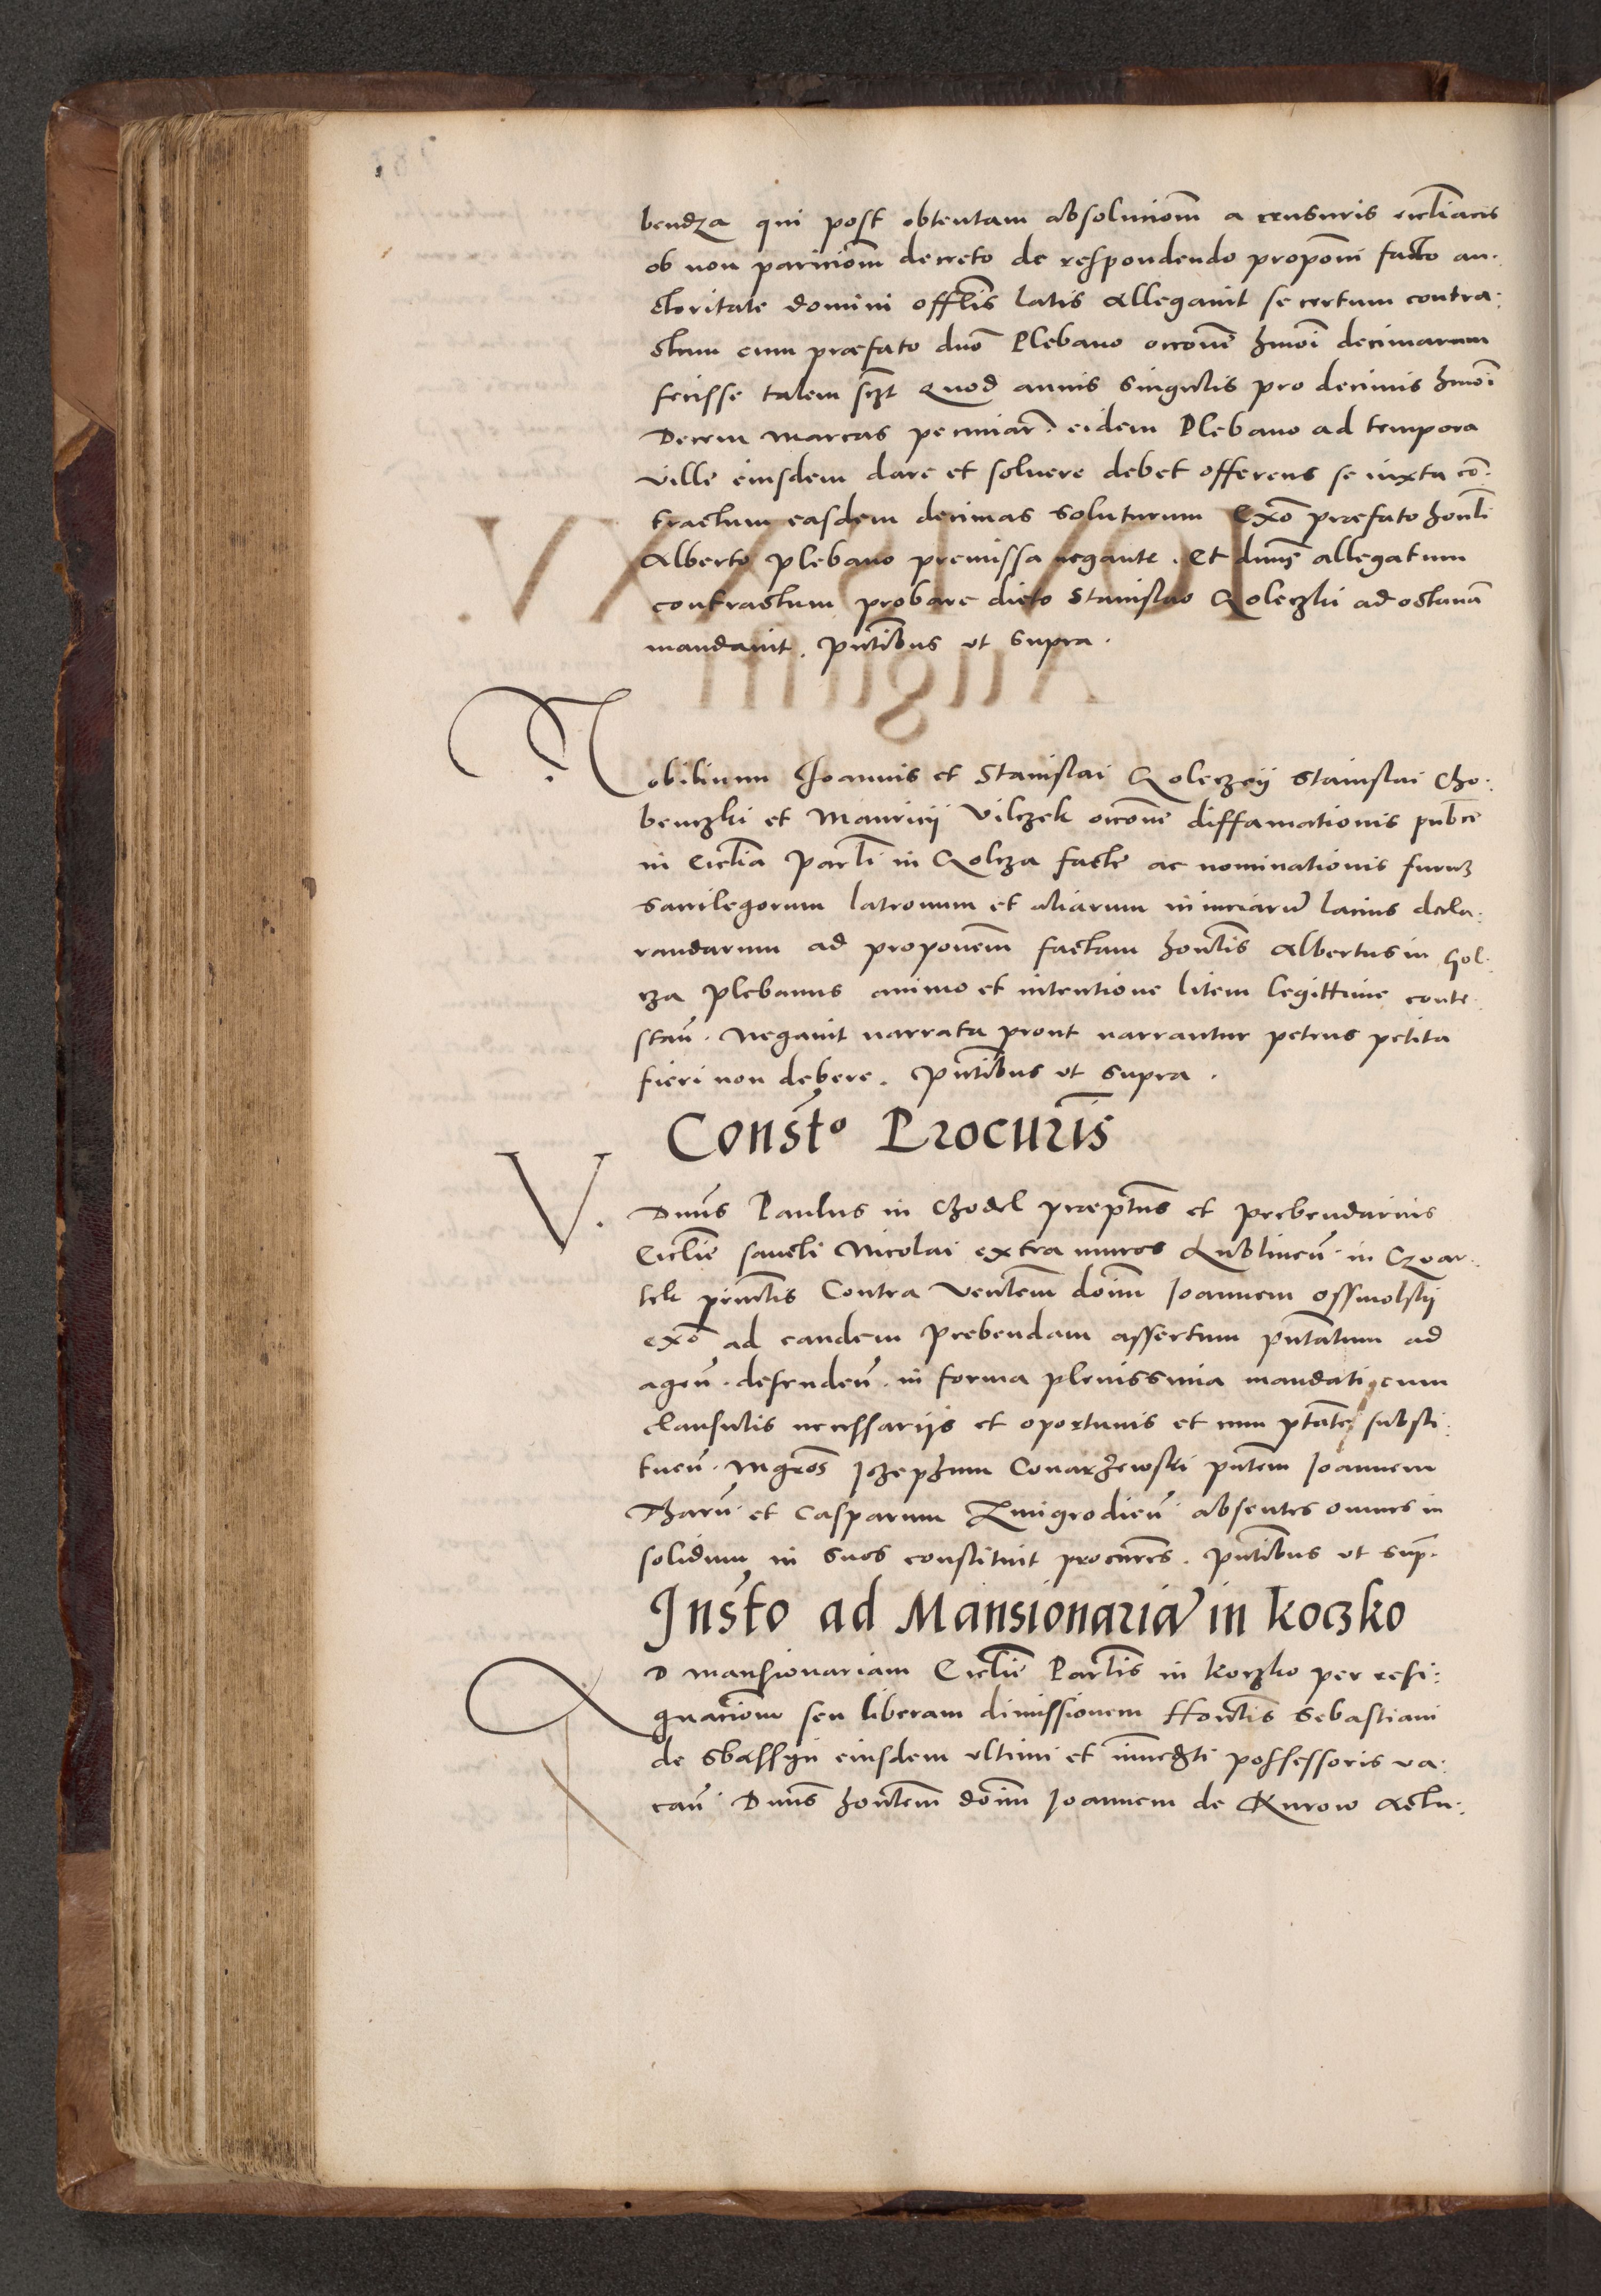 bendza qui post obtentam absolucioēm a censuris eccl̄iacis
ob non paricioēm decreto de respondendo propōni facto au-
ctoritate domini offłis latis Allegavit se certum contra-
ctum cum præfato dnō Plebano occōne hmōi decimarum
fecisse talem sczt Quod annis singulis pro decimis hmōi
Decem marcas pecuniar̄. eidem Plebano ad tempora
ville eiusdem dare et soluere debet offerens se iuxta cō-
tractum easdem decimas soluturum Exō præfato honłi
Alberto plebano premissa negante. Et dnūs allegatum
contractum probare dicto Stanislao Goleczki ad octauā
mandauit. pn̄tibus vt supra.
Nobilium Joannis et Stanislai Goleczcij Stanislai Cho-
benczki et Mauricij Vilczek occōne diffamationis publ̄ce
in Eccl̄ia Parłi in Golcza facte ac nominationis furuz
sacrilegorum latronum et aliarum iniuriarū lacius decla-
randarum ad proponēm factam honłis Albertus in Gol-
cza Plebanus animo et intentione litem legittime conte-
stan̄. Negauit narrata prout narrantur petens petita
fieri non debere. Pn̄tibus vt supra.
Consto Procuris
V. Dnūs Paulus in Chodel præptūs et prebendarius
Eccl̄ie sancti Nicolai extra muros Lublinen̄. in Czwar-
tek principłis Contra Ven̄tem dom̄ Joannem Ossmolskij
exō ad eandem prebendam assertum pn̄tatum ad
agen̄. defenden̄. in forma plenissima mandati cum
clausulis necessariis et oportunis et cum pt̄ate substi-
tuen̄. Mgr̄os Jozephum Conarzewski pn̄tem Joannem
Tharn̄ et Casparum Zmigrodien̄ absentes omnes in
solidum in suos constituit procūres. Pn̄tibus vt sup̄.
Jnsto ad Mansionariā in koczko
AD mansionariam Eccl̄ie Parłis in koczko per resi-
gnacionem seu liberam dimissionem Honłis Sebastiani
de Sbassyn eiusdem vltimi et immedti possessoris va-
can̄ Dnūs honłem dom̄ Joannem de Kurow Actu-